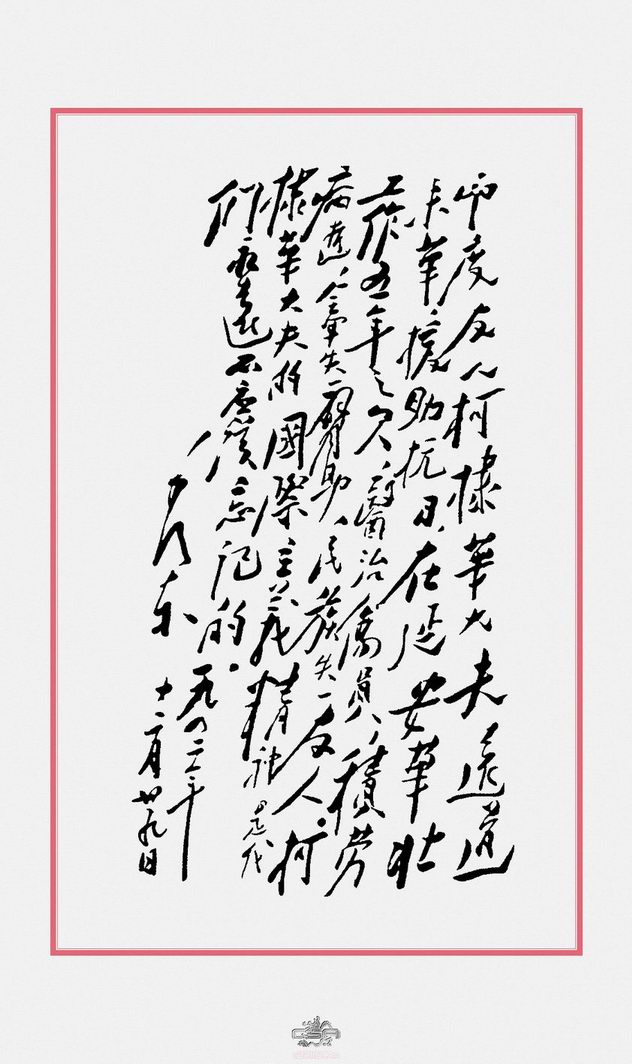 印度友人柯棣華大夫遠道
来華,援助抗日,在延安華北
工作五年之久,醫治傷員,積勞
病逝,全軍失一臂助,民族失一友人。柯
棣華大夫的國際主義精神,是我
們永遠不應該忘記的。
毛泽东
一九四二年
十二月廿九日